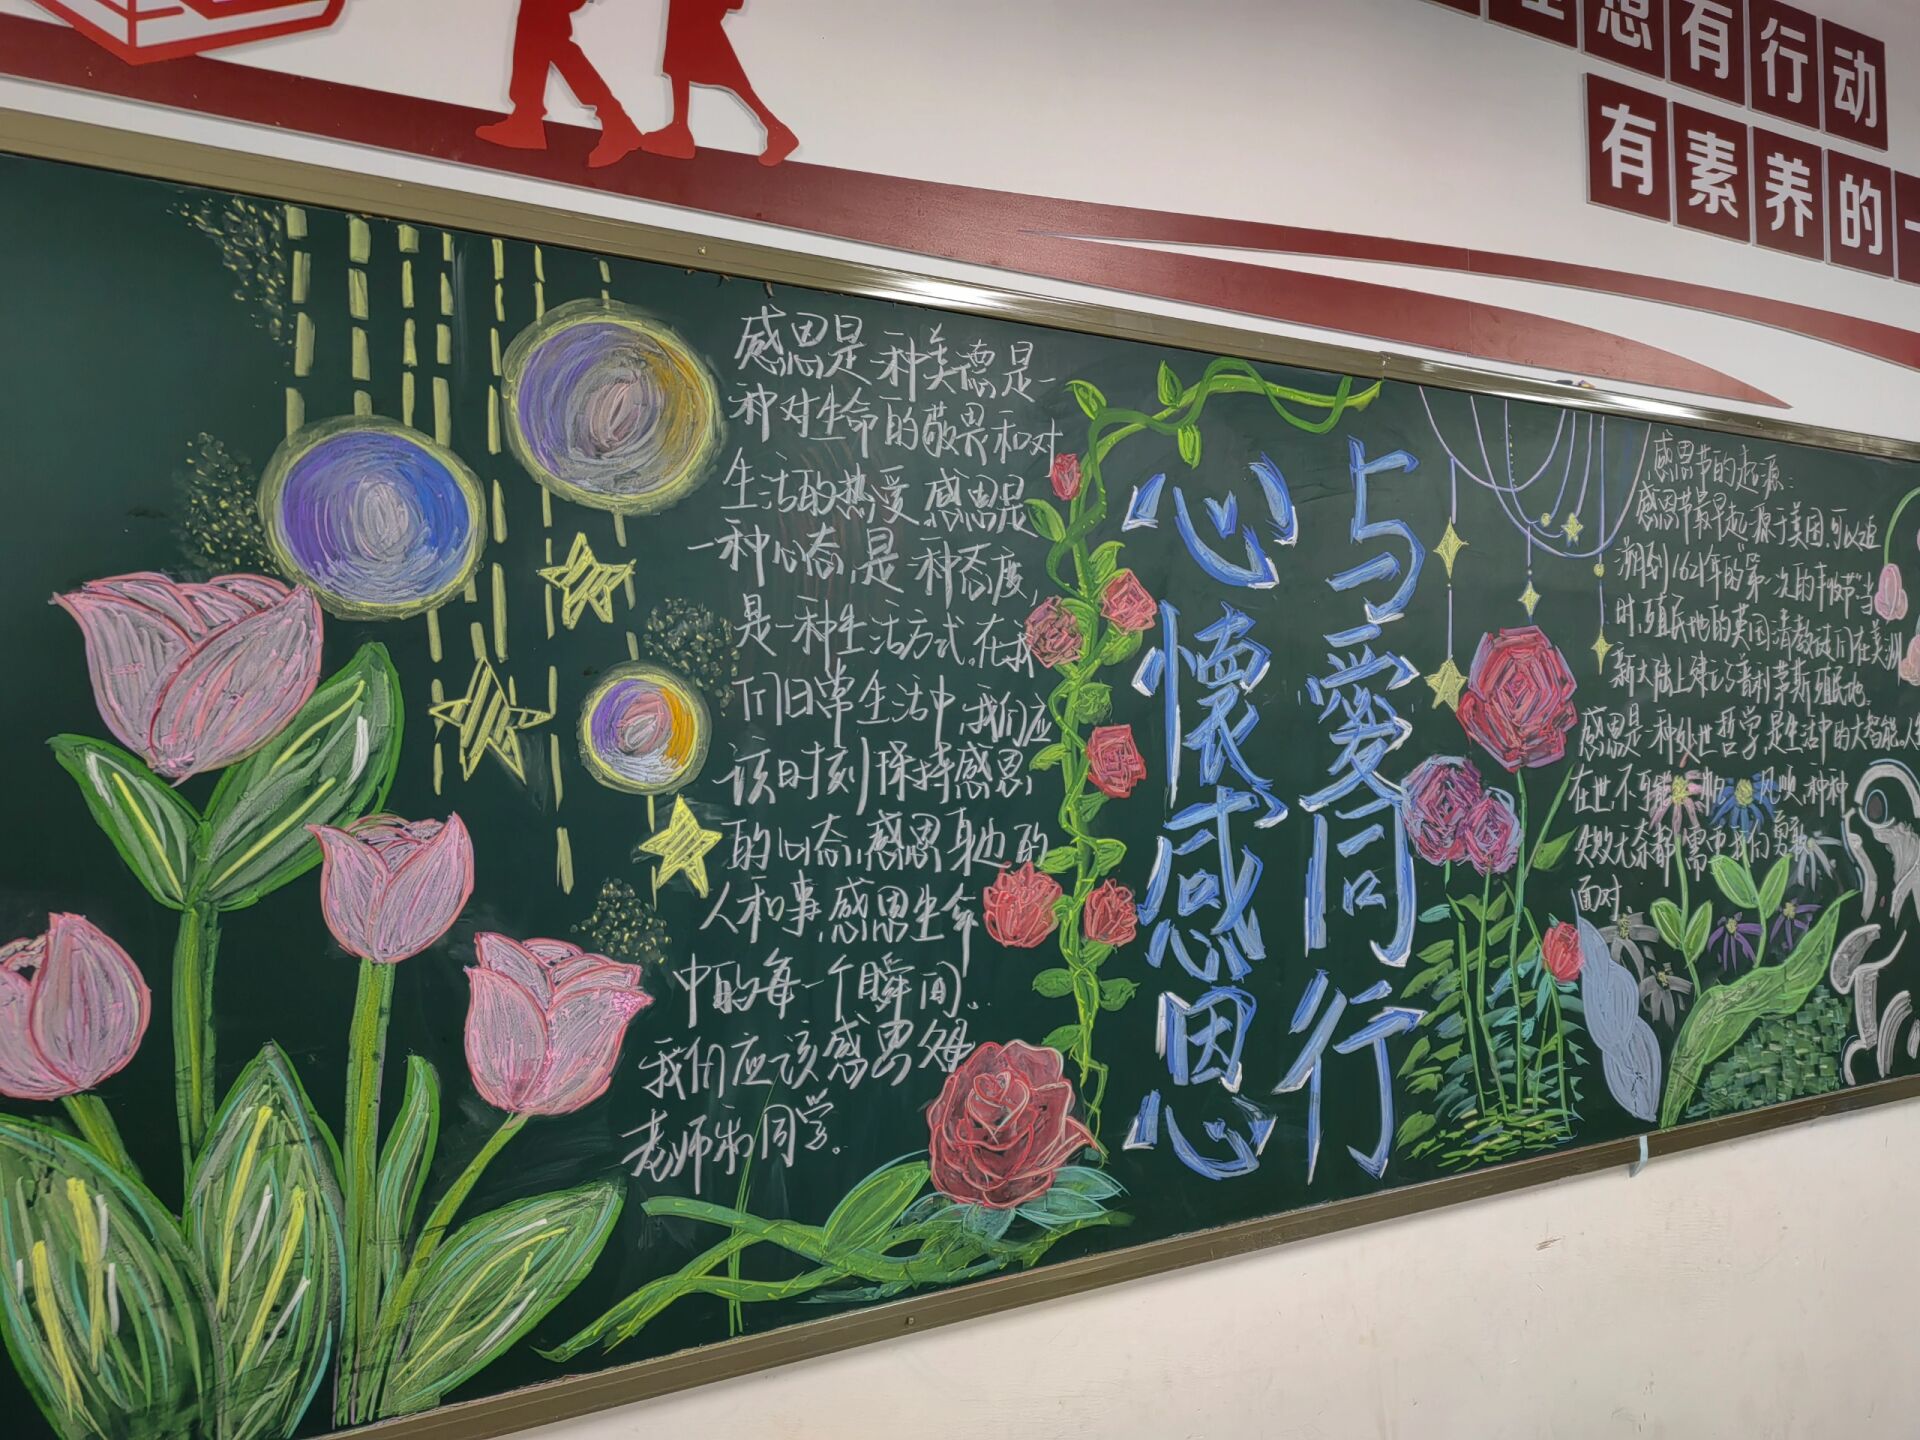 想有行动
有素养的一
感恩是一种美德是一
种对生命的敬畏和对
生活的热爱,感恩是
一种心态,是一种态度,
是一种生活方式。在我
们日常生活中,我们应
该时刻保持感恩
的心态,感恩身边的
人和事,感恩生命
中的每一个瞬间。
我们应该感恩
老师和同学。
心懷感恩
与愛同行
感恩节的起源:
感恩节最早起源于美国,可以追
溯到1621年的"第一次的丰收节"当
时,殖民地的英国清教徒们在美洲
新大陆上建立了普利茅斯殖民地。
感恩是一种处世哲学,是生活中的大智能。人生
在世,不可能一帆风顺,种种
失败无奈都需要我们勇敢
面对